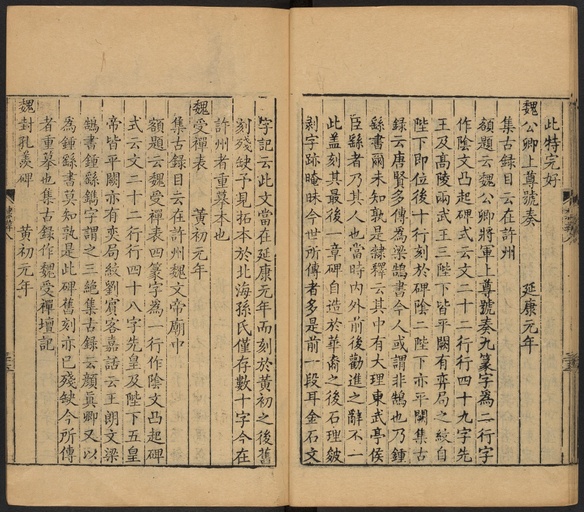 此特完好
魏公卿上尊號奏　延康元年
集古錄目云在許州
額題云魏公卿將軍上尊號奏九篆字為二行字
作陰文凸起碑式云文二十二行行四十九字先
王及高陵兩武王三陛下皆平闕有弈局之紋自
陛下即位後十行刻於碑陰二陛下亦平闕集古
錄云唐賢多傳為梁鵠書今人或謂非鵠也乃鍾
繇書爾未知孰是隷釋云其中有大理東武亭侯
臣繇者乃其人也當時內外前後勸進之辭不一
此蓋刻其最後一章碑自造於華裔之後石理皴
剥字跡晻昧今世所傳者多是前一段耳金石文
字記云此文當在延康元年而刻於黃初之後舊
刻殘缺予見拓本於北海孫氏僅存數十字今在
許州者重摹本也
魏受禪表　黃初元年
集古錄目云在許州魏文帝廟中
額題云魏受禪表四篆字為一行作陰文凸起碑
式云文二十二行行四十八字先皇及陛下五皇
帝皆平闕亦有奕局紋劉賓客嘉話云王朗文梁
鵠書鍾繇鐫字謂之三絶集古錄云顏真卿又以
為鍾繇書莫知孰是此碑舊刻亦已殘缺今所傳
者重摹也集古錄作魏受禪壇記
魏封孔羨碑　黃初元年